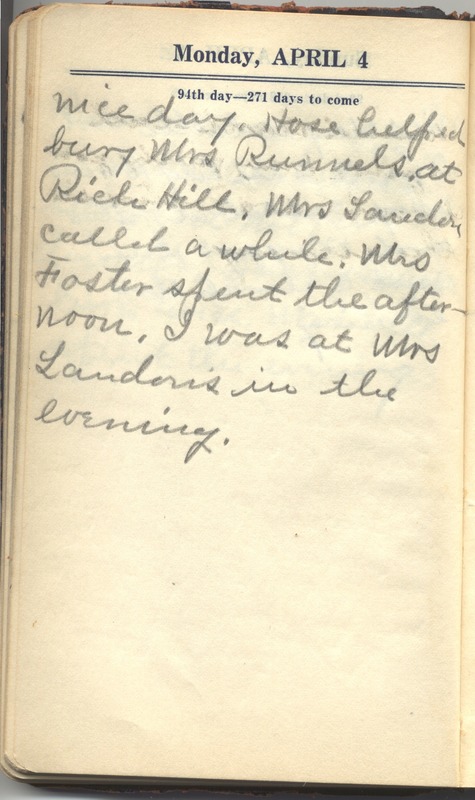 Monday, APRIL 4
94th day—271 days to come
nice day. Hose helped
bury Mrs Runnels, at
Rich Hill. Mrs Landon
called a while. Mrs
Foster spent the after-
noon. I was at Mrs
Landons in the
evening.